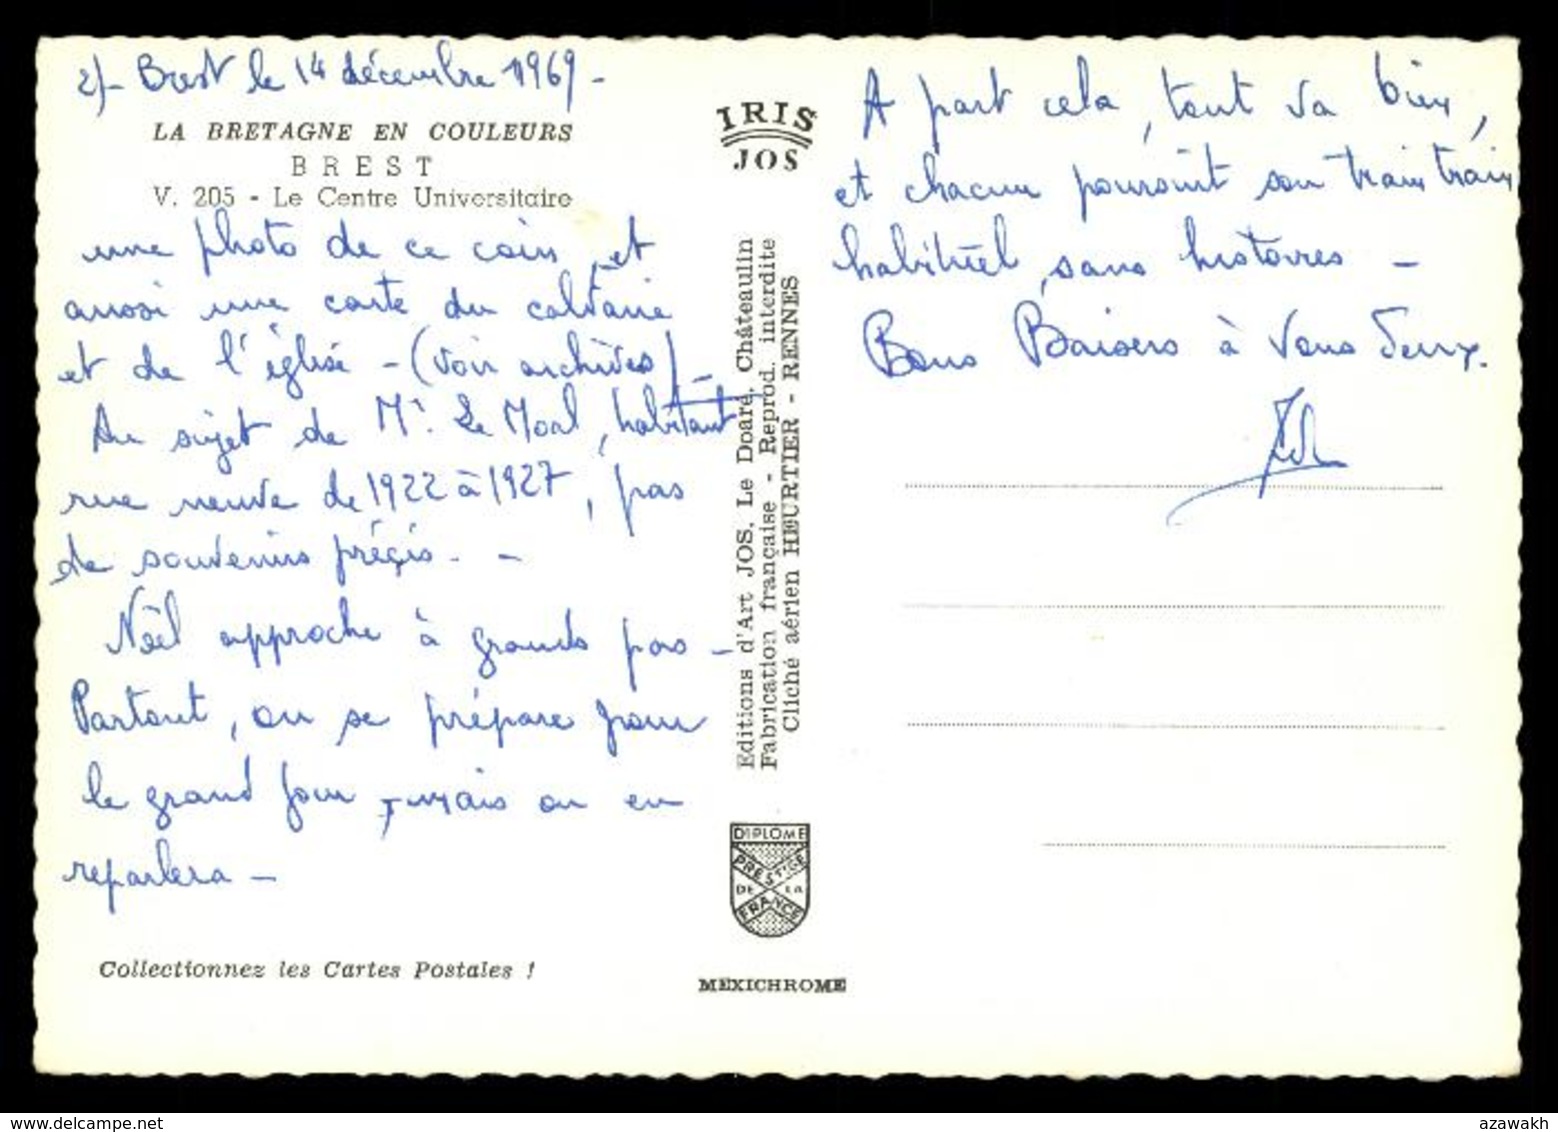 2)- Brest le 14 décembre 1969 -
LA BRETAGNE EN COULEURS
BREST
V. 205 - Le Centre Universitaire
une photo de ce coin, et
aussi une carte du calvaire
et de l'église - (voir archives) -
Au sujet de Mr. Le Moal, habitant
rue neuve de 1922 à 1927, pas
de souvenirs précis. -
Nöel approche à grands pas -
Partout, on se prépare pour
le grand jour, mais on en
reparlera -
Collectionnez les Cartes Postales !
IRIS
JOS
Editions d'Art JOS, Le Doaré, Châteaulin
Fabrication française - Reprod. interdite
Cliché aérien HEURTIER - RENNES
DIPLOME
PRESTIGE
DE LA
FRANCE
MEXICHROME
A part cela, tout va bien,
et chacun poursuit son train train
habituel, sans histoires -
Bons Baisers à Vous Deux.
azawakh